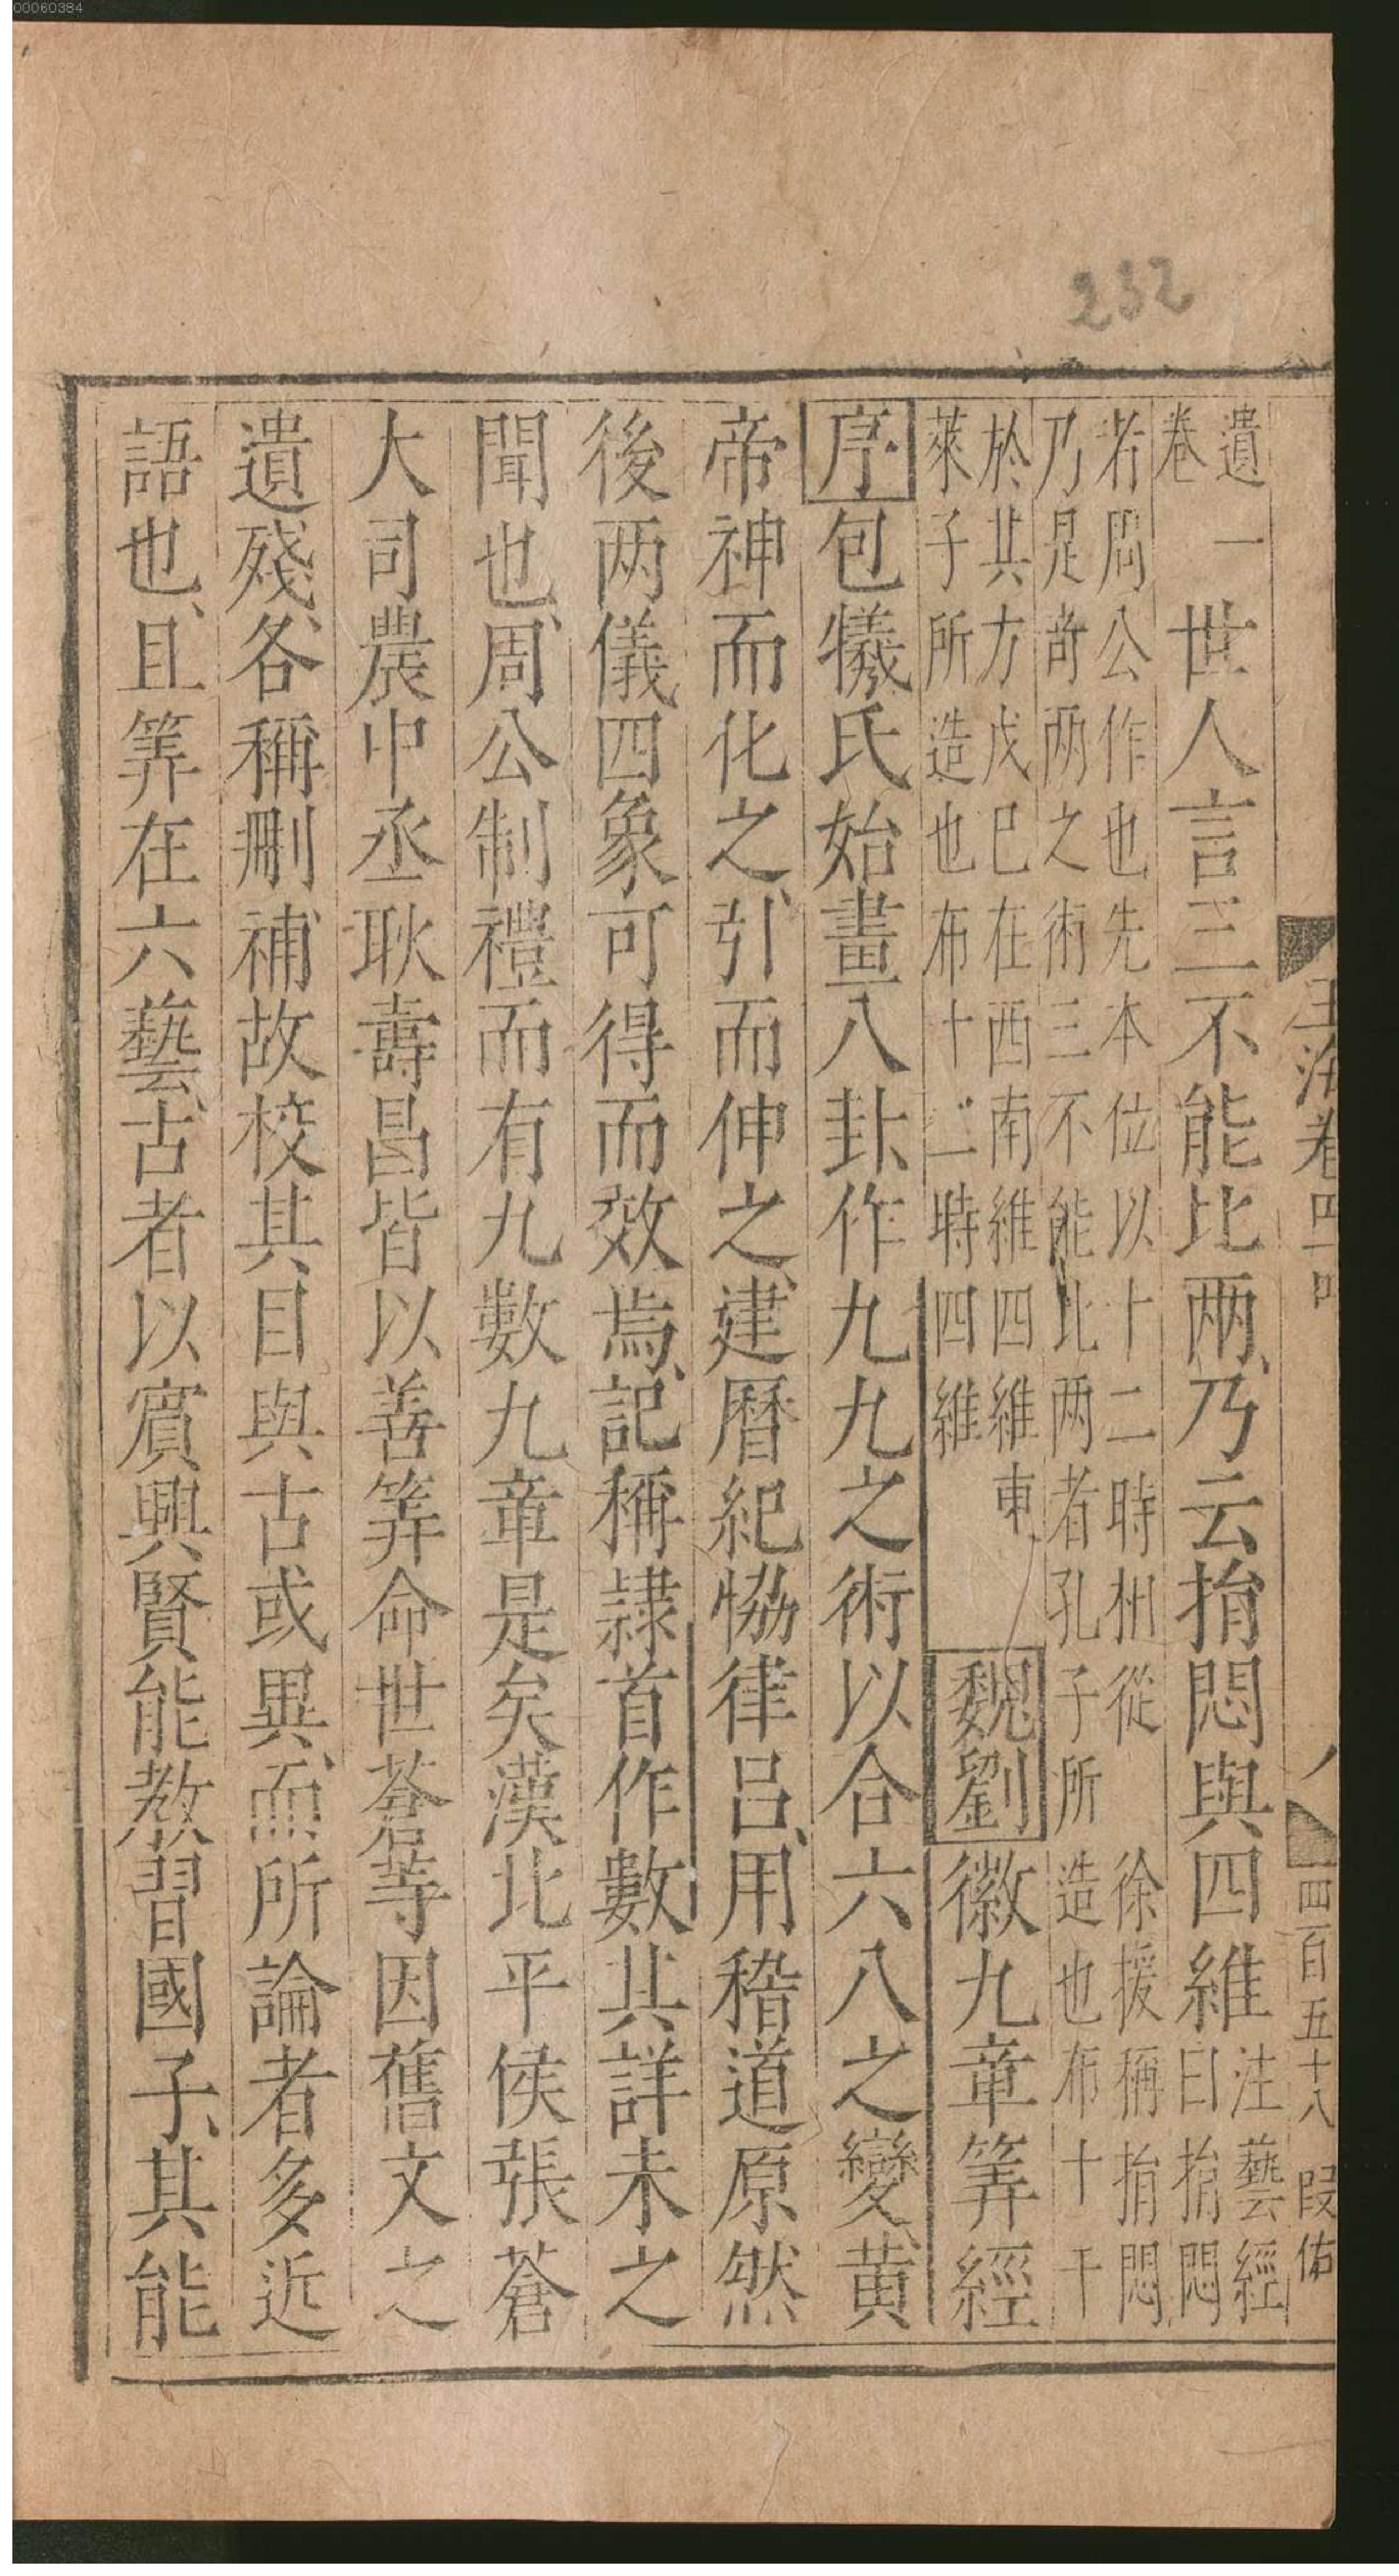 00060384
232
玉海卷四十四
四百五十八 段佑
遺一
卷
世人言三不能比两乃云捎悶與四維
注藝經
曰捎悶
者周公作也先本位以十二時相從 徐援稱捎悶
乃是奇两之術三不能比两者孔子所造也布十干
於其方戊巳在西南維四維東
萊子所造也布十二時四維
魏劉徽九章筭經
序包犧氏始畫八卦作九九之術以合六八之變黄
帝神而化之引而伸之建曆紀恊律吕用稽道原然
後两儀四象可得而效焉記稱隷首作數其詳未之
聞也周公制禮而有九數九章是矣漢北平侯張蒼
大司農中丞耿壽昌皆以善筭命世蒼等因舊文之
遺殘各稱刪補故校其目與古或異而所論者多近
語也且筭在六藝古者以賓興賢能教習國子其能